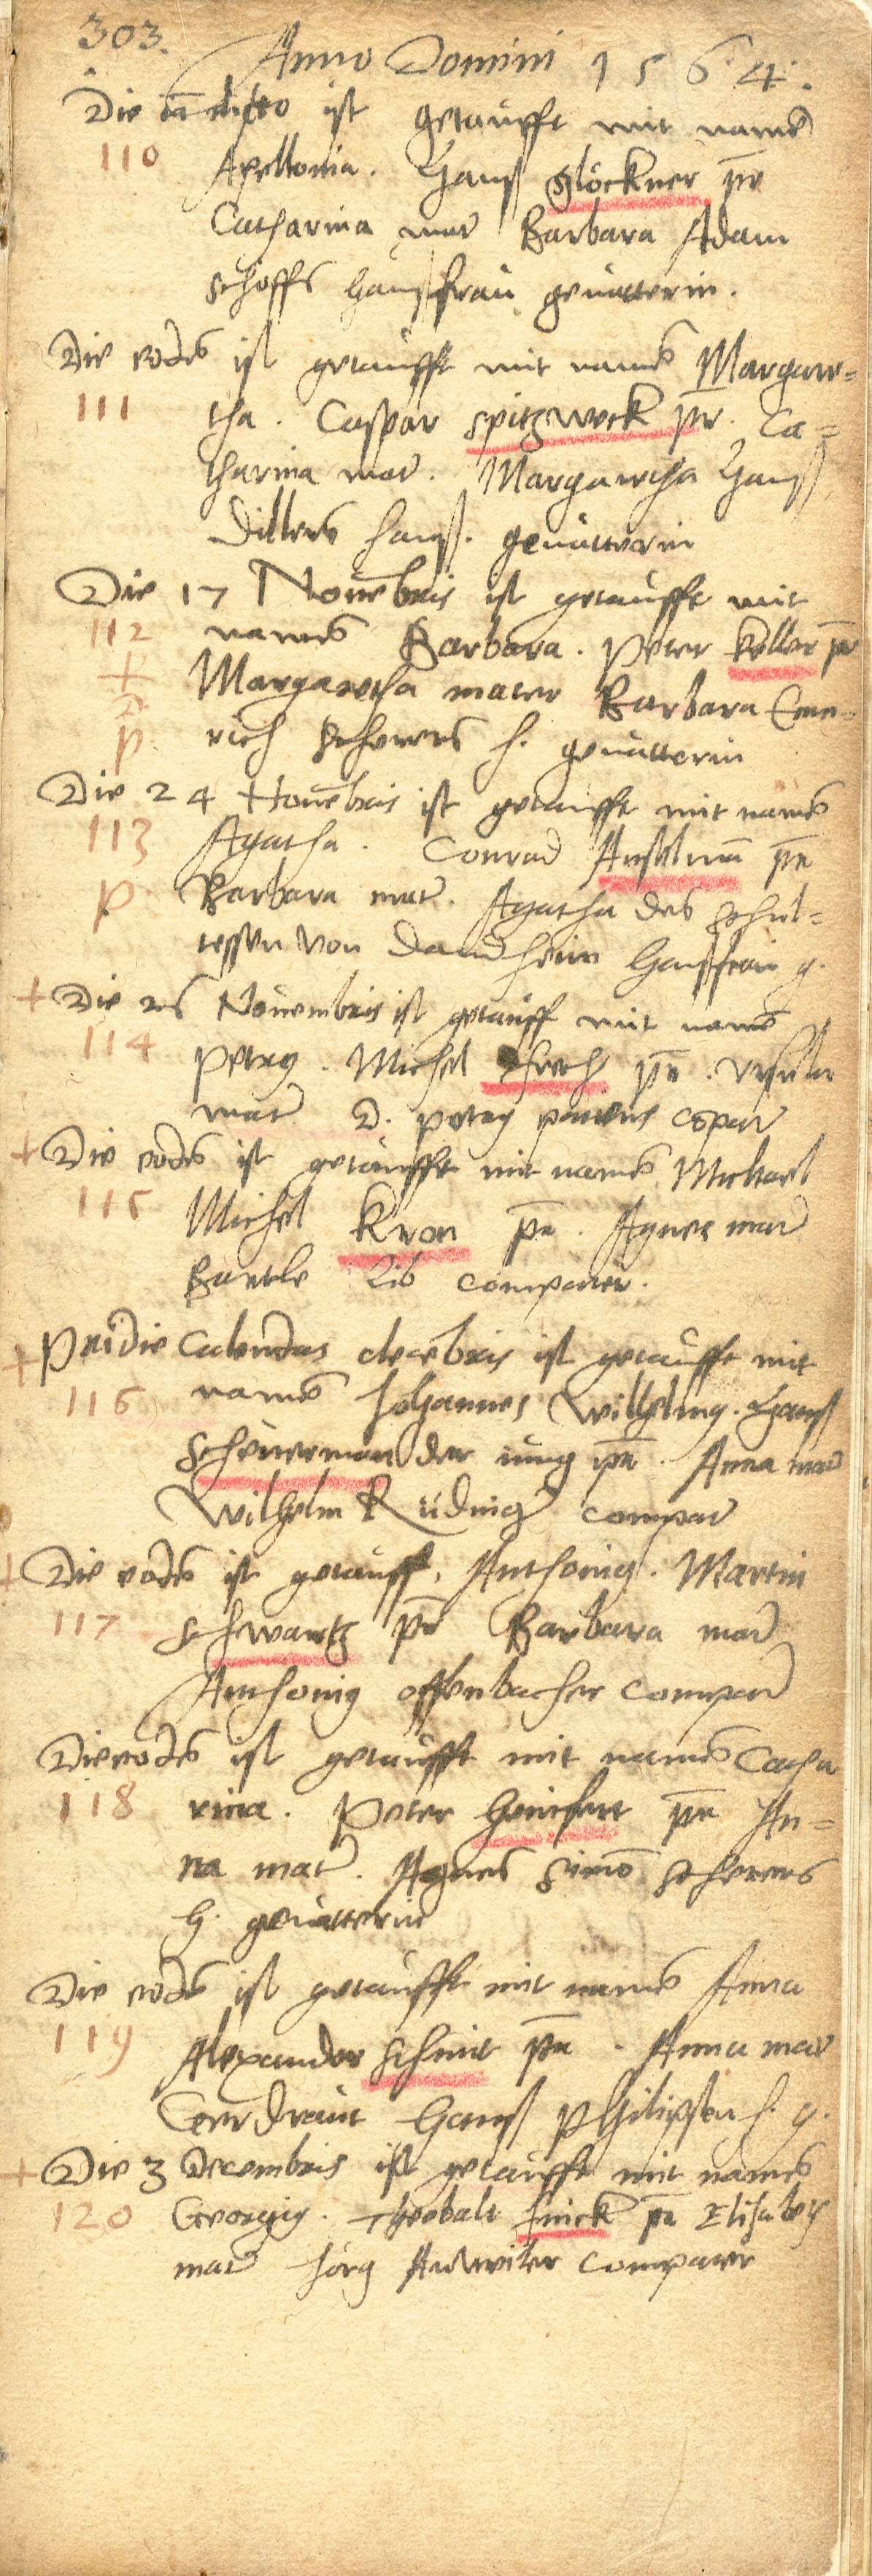 303.
Anno Domini 1564.
Die dicto ist getaufft mit namē
110 Apellonia. Hanß Glöckner pr̄
Catharina mat̄ Barbara Adam
schoffs haußfrau geuatterin.
Die eodē ist getaufft mit namē Margare=
111 tha. Caspar Spitzweck pr̄. Ca=
tharina mat̄. Margaretha Hanß
Dillers hauß. geuatterin
Die 17 Nouēbris ist getaufft mit
112 namē Barbara. Peter Keller pr̄
+ Margaretha mater Barbara Eme=
p rich Scherers h. geuatterin
Die 24 Nouēbris ist getaufft mit namē
113 Agatha. Conrad Anselmā pr̄
p Barbara mat̄. Agatha des schul=
tessen von haußfrau g.
+ Die 26 Nouembris ist getauff mit namē
114 Petrus. Michel pr̄. Ursula
mat̄ D. Petrus cōpat̄
+ Die eodē ist getaufft mit namē Michael
115 Michel Kron pr̄. Agnes mat̄
Bartle Lib compater.
+ Pridie Calendas decēbris ist getaufft mit
116 namē Johannes Wilhelmus. Hanß
Scheuerman der iung pr̄. Anna mat̄
Wilhelm Rüdinger compat̄
+ Die eodē ist getauff. Anthonius. Martin
117 Schwartz pr̄ Barbara mat̄
Anthonius Offenbacher compat̄
Die eodē ist getaufft mit namē Catha
118 rina. Peter pr̄ An=
na mat̄. Agnes Simō Scherers
h. geuatterin
Die eodē ist getaufft mit namē Anna
119 Alexander Schmit pr̄. Anna mat̄
Gerdraut Hanß Philipsen h. g.
+ Die 3 Decembris ist getaufft mit namē
120 Georgius. Theobalt Finck pr̄ Elisabeth
mat̄ Jörg compater